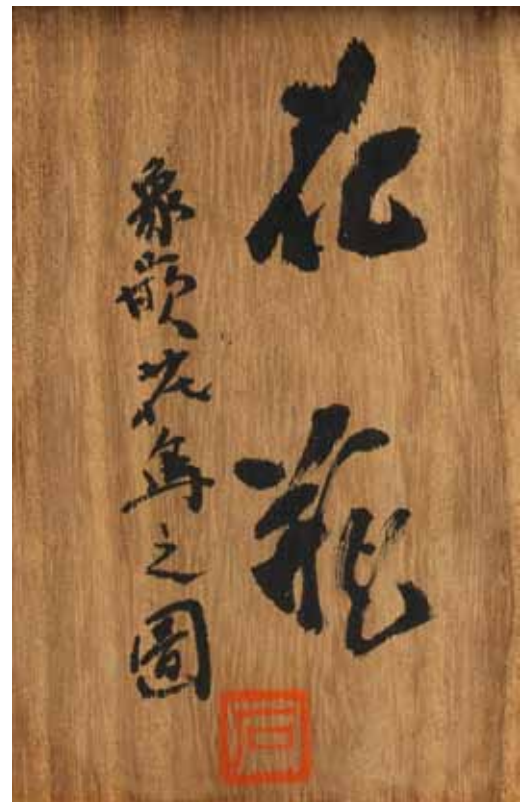 花瓶
象嵌花鳥之圖